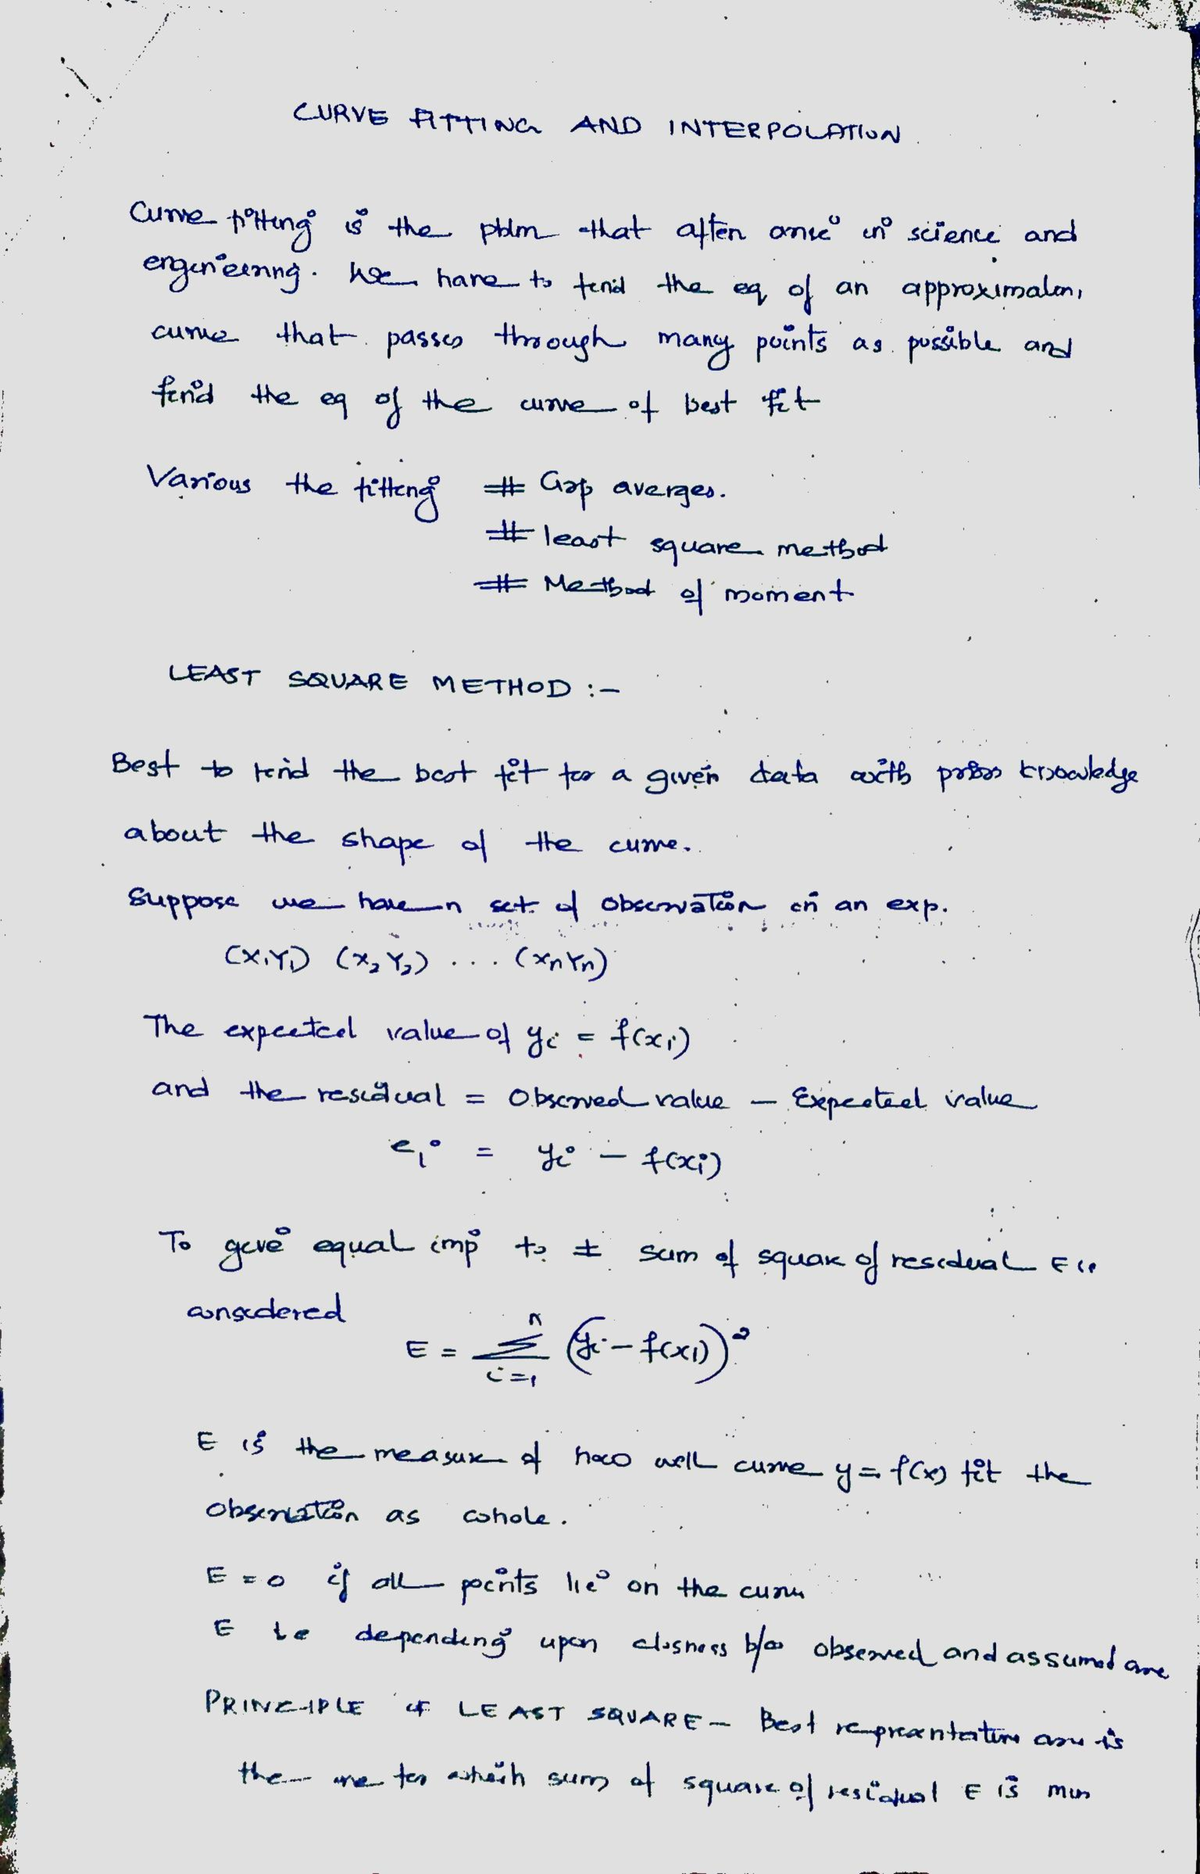 CURVE FITTING AND INTERPOLATION
Curve fitting is the pblm that often arise in science and
engineering. We have to find the eq of an approximaton,
curve that passes through many points as possible and
find the eq of the curve of best fit
Various the fitting # Grp averges.
# least square method
# Method of moment
LEAST SQUARE METHOD :-
Best to find the best fit for a given data with prior knowledge
about the shape of the curve.
Suppose we have n set of observation in an exp.
(X₁Y₁) (X₂Y₂) ... (XnYn)
The expected value of yi = f(xi)
and the residual = Observed value - Expected value
ei = yi - f(xi)
To give equal imp to ± sum of square of residual E is
considered
E = Σ_{i=1}^{n} (yi - f(xi))²
E is the measure of how well curve y = f(x) fit the
observation as whole.
E = 0 if all points lie on the curve
E depending upon closness b/w observed and assumed
PRINCIPLE OF LEAST SQUARE - Best representative is
the one for which sum of square of residual E is min